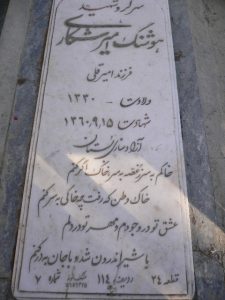 سرگرد شهید
هوشنگ امیرشکاری
فرزند امیرقلی
ولادت - ۱۳۳۰
شهادت ۱۳۶۰٫۹٫۱۵
آزادسازی بستان
خاکم به سر ز غصه به سر خاک اگر کنم
خاک وطن که رفت چه خاکی به سر کنم
عشق تو در وجودم و مهر تو در دلم
با شیر اندرون شد و با جان به در کنم
قطعه ۲۴ ردیف ۱۱۴ شماره ۷